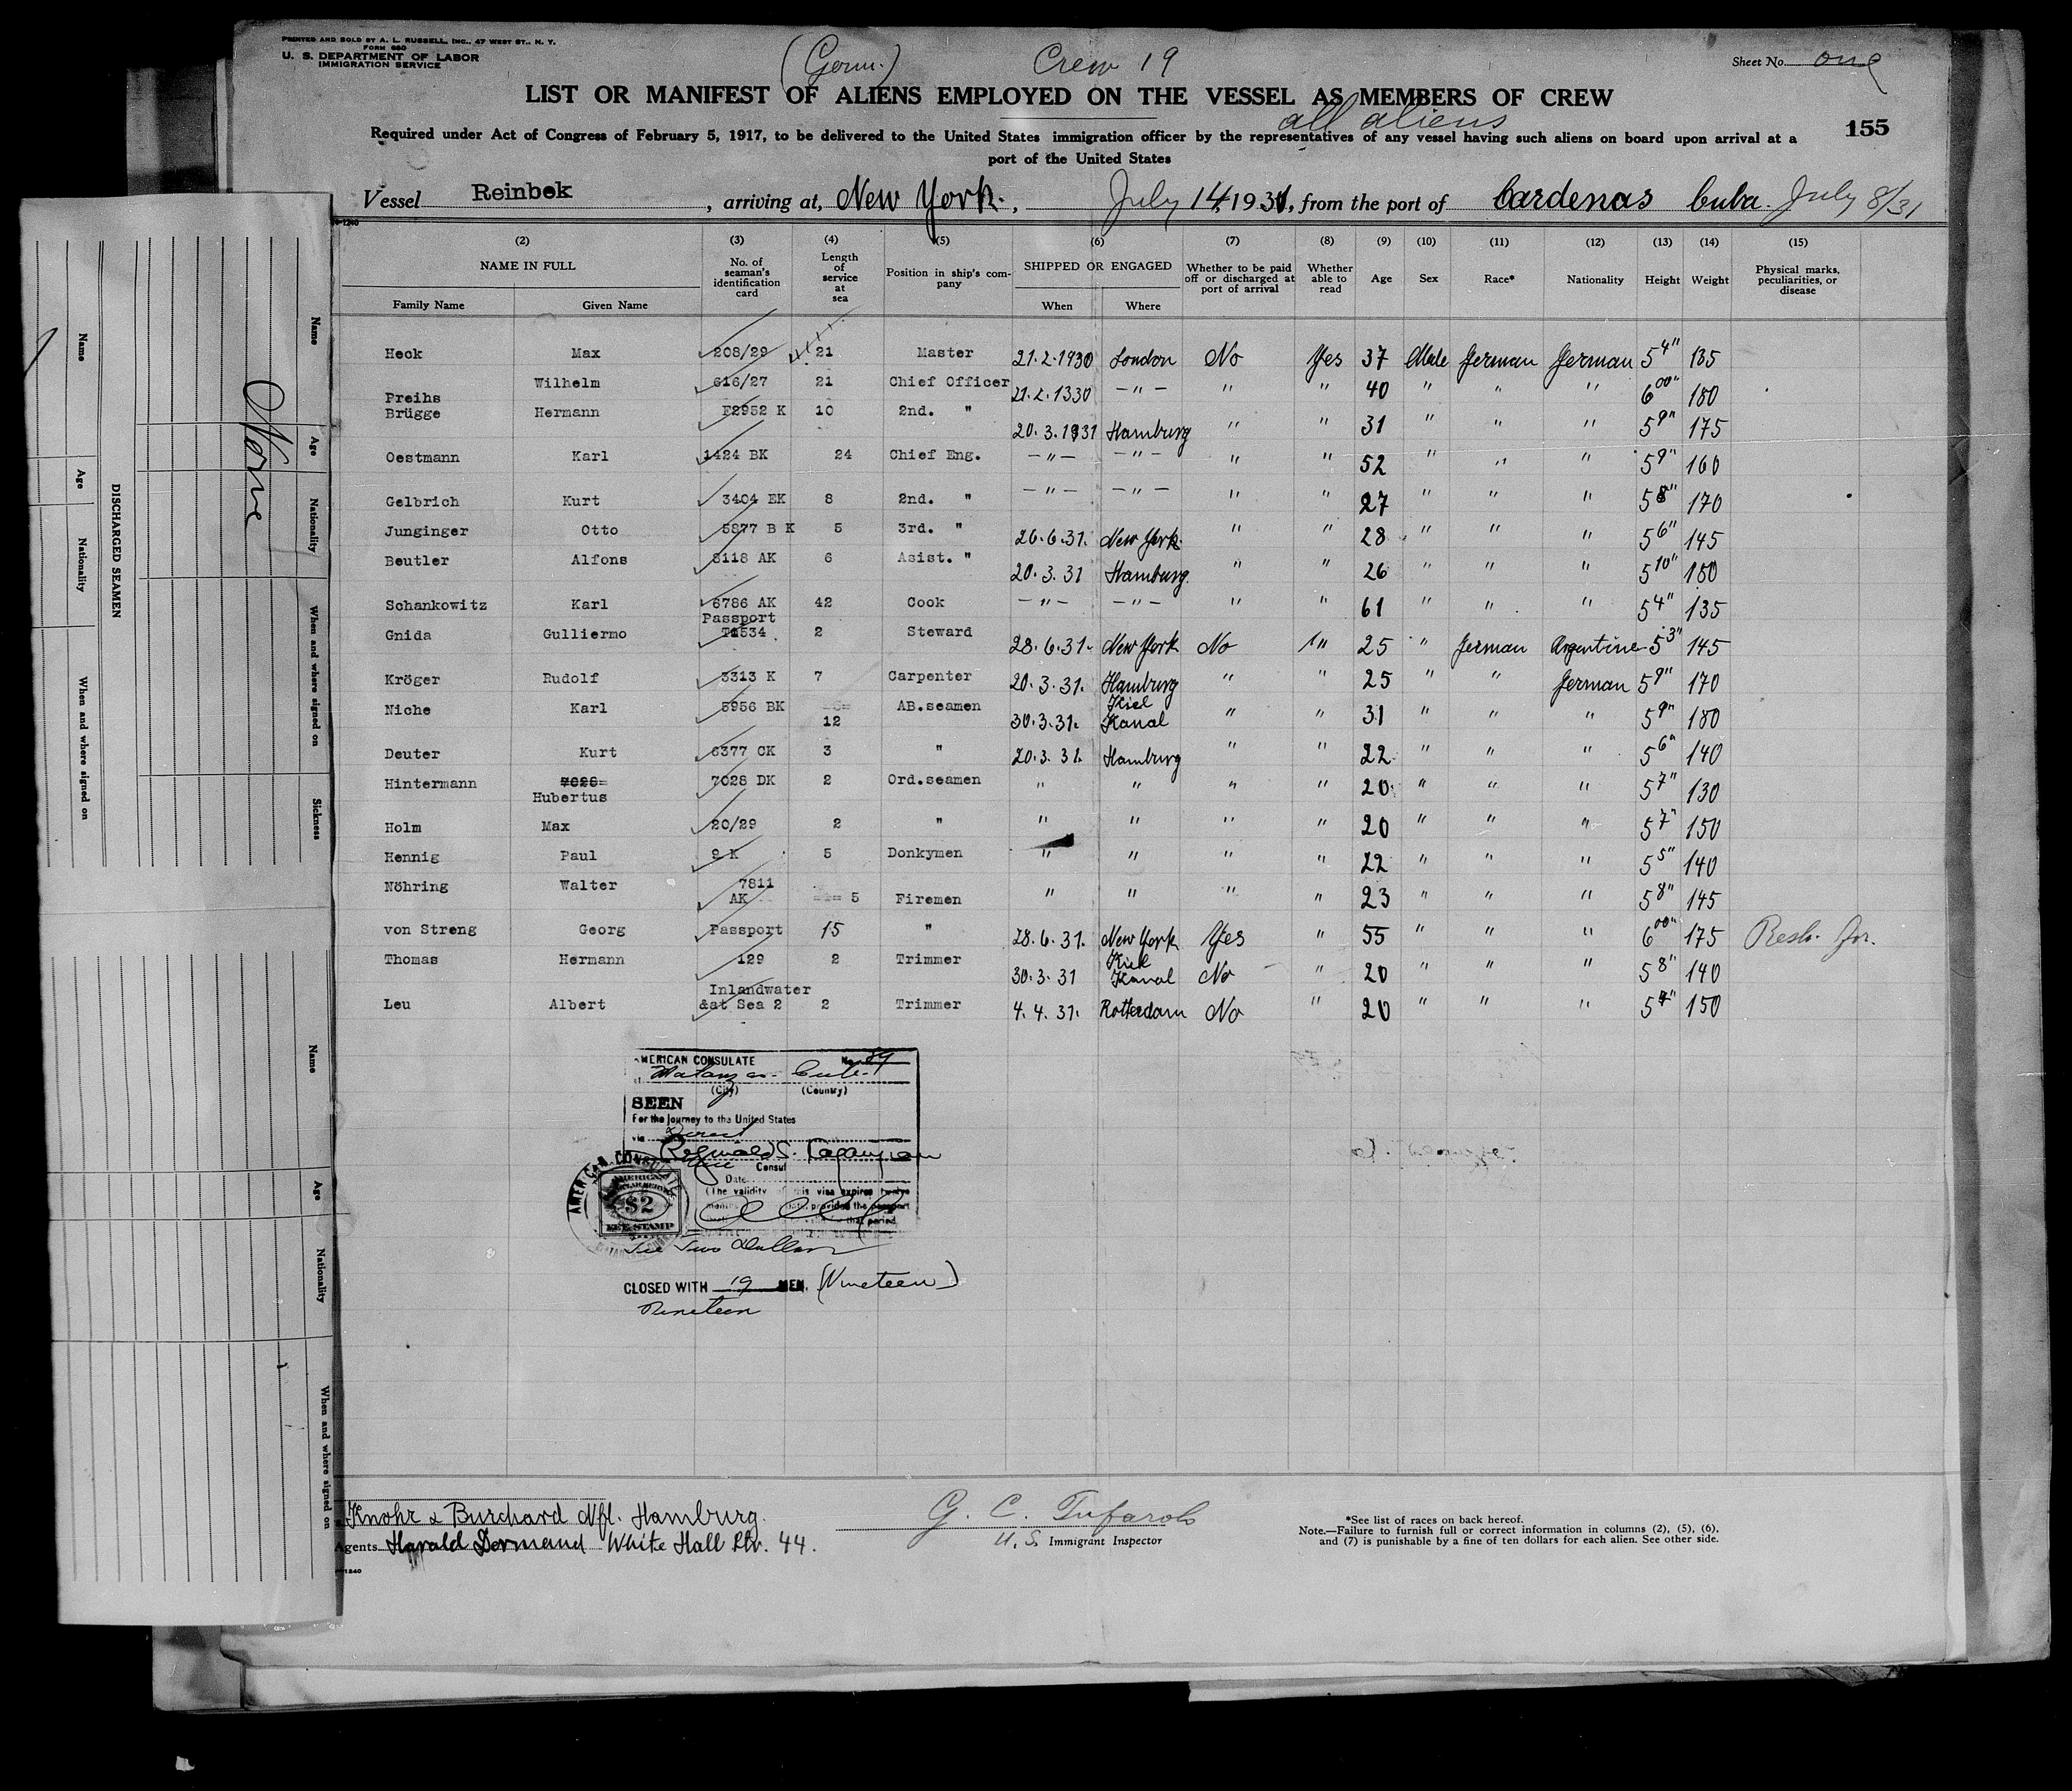 PRINTED AND SOLD BY A. L. RUSSELL, INC., 47 WEST ST., N. Y.
FORM 680
U. S. DEPARTMENT OF LABOR
IMMIGRATION SERVICE
(Germ.)
Crew 19
Sheet No. one
LIST OR MANIFEST OF ALIENS EMPLOYED ON THE VESSEL AS MEMBERS OF CREW
all aliens
Required under Act of Congress of February 5, 1917, to be delivered to the United States immigration officer by the representatives of any vessel having such aliens on board upon arrival at a
port of the United States
155
Vessel Reinbek, arriving at, New York., July 14, 1931, from the port of Cardenas Cuba. July 8/31
(2) (3) (4) (5) (6) (7) (8) (9) (10) (11) (12) (13) (14) (15)
NAME IN FULL No. of seaman's identification card Length of service at sea Position in ship's company SHIPPED OR ENGAGED Whether to be paid off or discharged at port of arrival Whether able to read Age Sex Race* Nationality Height Weight Physical marks, peculiarities, or disease
Family Name Given Name When Where
Heck Max 208/29 21 Master 21.2.1930 London No Yes 37 Male German German 5 4" 135
Preihs Wilhelm 616/27 21 Chief Officer 21.2.1330 -"- " " 40 " " " 6 00" 180
Brügge Hermann F2952 K 10 2nd. " 20.3.1931 Hamburg " " 31 " " " 5 9" 175
Oestmann Karl 1424 BK 24 Chief Eng. -"- -"- " " 52 " " " 5 9" 160
Gelbrich Kurt 3404 EK 8 2nd. " -"- -"- " " 27 " " " 5 8" 170
Junginger Otto 5877 B K 5 3rd. " 26.6.31. New York " " 28 " " " 5 6" 145
Beutler Alfons 8118 AK 6 Asist. " 20.3.31 Hamburg. " " 26 " " " 5 10" 180
Schankowitz Karl 6786 AK 42 Cook -"- -"- " " 61 " " " 5 4" 135
Gnida Gulliermo Passport 2 Steward 28.6.31. New York No " 25 " German Argentine 5 3" 145
Kröger Rudolf 3313 K 7 Carpenter 20.3.31. Hamburg " " 25 " " German 5 9" 170
Niche Karl 5956 BK 12 AB.seamen 30.3.31. Kiel Kanal " " 31 " " " 5 9" 180
Deuter Kurt 6377 CK 3 " 20.3.31. Hamburg " " 22 " " " 5 6" 140
Hintermann 7028 Hubertus 7028 DK 2 Ord.seamen " " " " 20 " " " 5 7" 130
Holm Max 20/29 2 " " " " " 20 " " " 5 7" 150
Hennig Paul 9 K 5 Donkymen " " " " 22 " " " 5 5" 140
Nöhring Walter 7811 AK 5 Firemen " " " " 23 " " " 5 8" 145
von Streng Georg Passport 15 " 28.6.31. New York Yes " 55 " " " 6 00" 175
Thomas Hermann 129 2 Trimmer 30.3.31 Kiel Kanal No " 20 " " " 5 8" 140
Leu Albert Inlandwater &at Sea 2 2 Trimmer 4.4.31. Rotterdam No " 20 " " " 5 150
AMERICAN CONSULATE No. 89
Matanzas Cuba
(City) (Country)
SEEN
For the journey to the United States
via Direct
Consul
Date
(The validity of this visa expires twelve
months date, provided the passport
that period
AMERICAN CONSULATE
$2
FEE STAMP
Fee Two Dollars
CLOSED WITH 19 MEN. (Nineteen)
Nineteen
Knohr & Burchard Nfl. Hamburg.
Agents Harald Dormand White Hall Str. 44.
G. C. Tufarolo
U. S. Immigrant Inspector
*See list of races on back hereof.
Note.—Failure to furnish full or correct information in columns (2), (5), (6),
and (7) is punishable by a fine of ten dollars for each alien. See other side.
DISCHARGED SEAMEN
Name Age Nationality When and where signed on
Name Age Nationality When and where signed on Sickness
None
Name Age Nationality When and where signed on